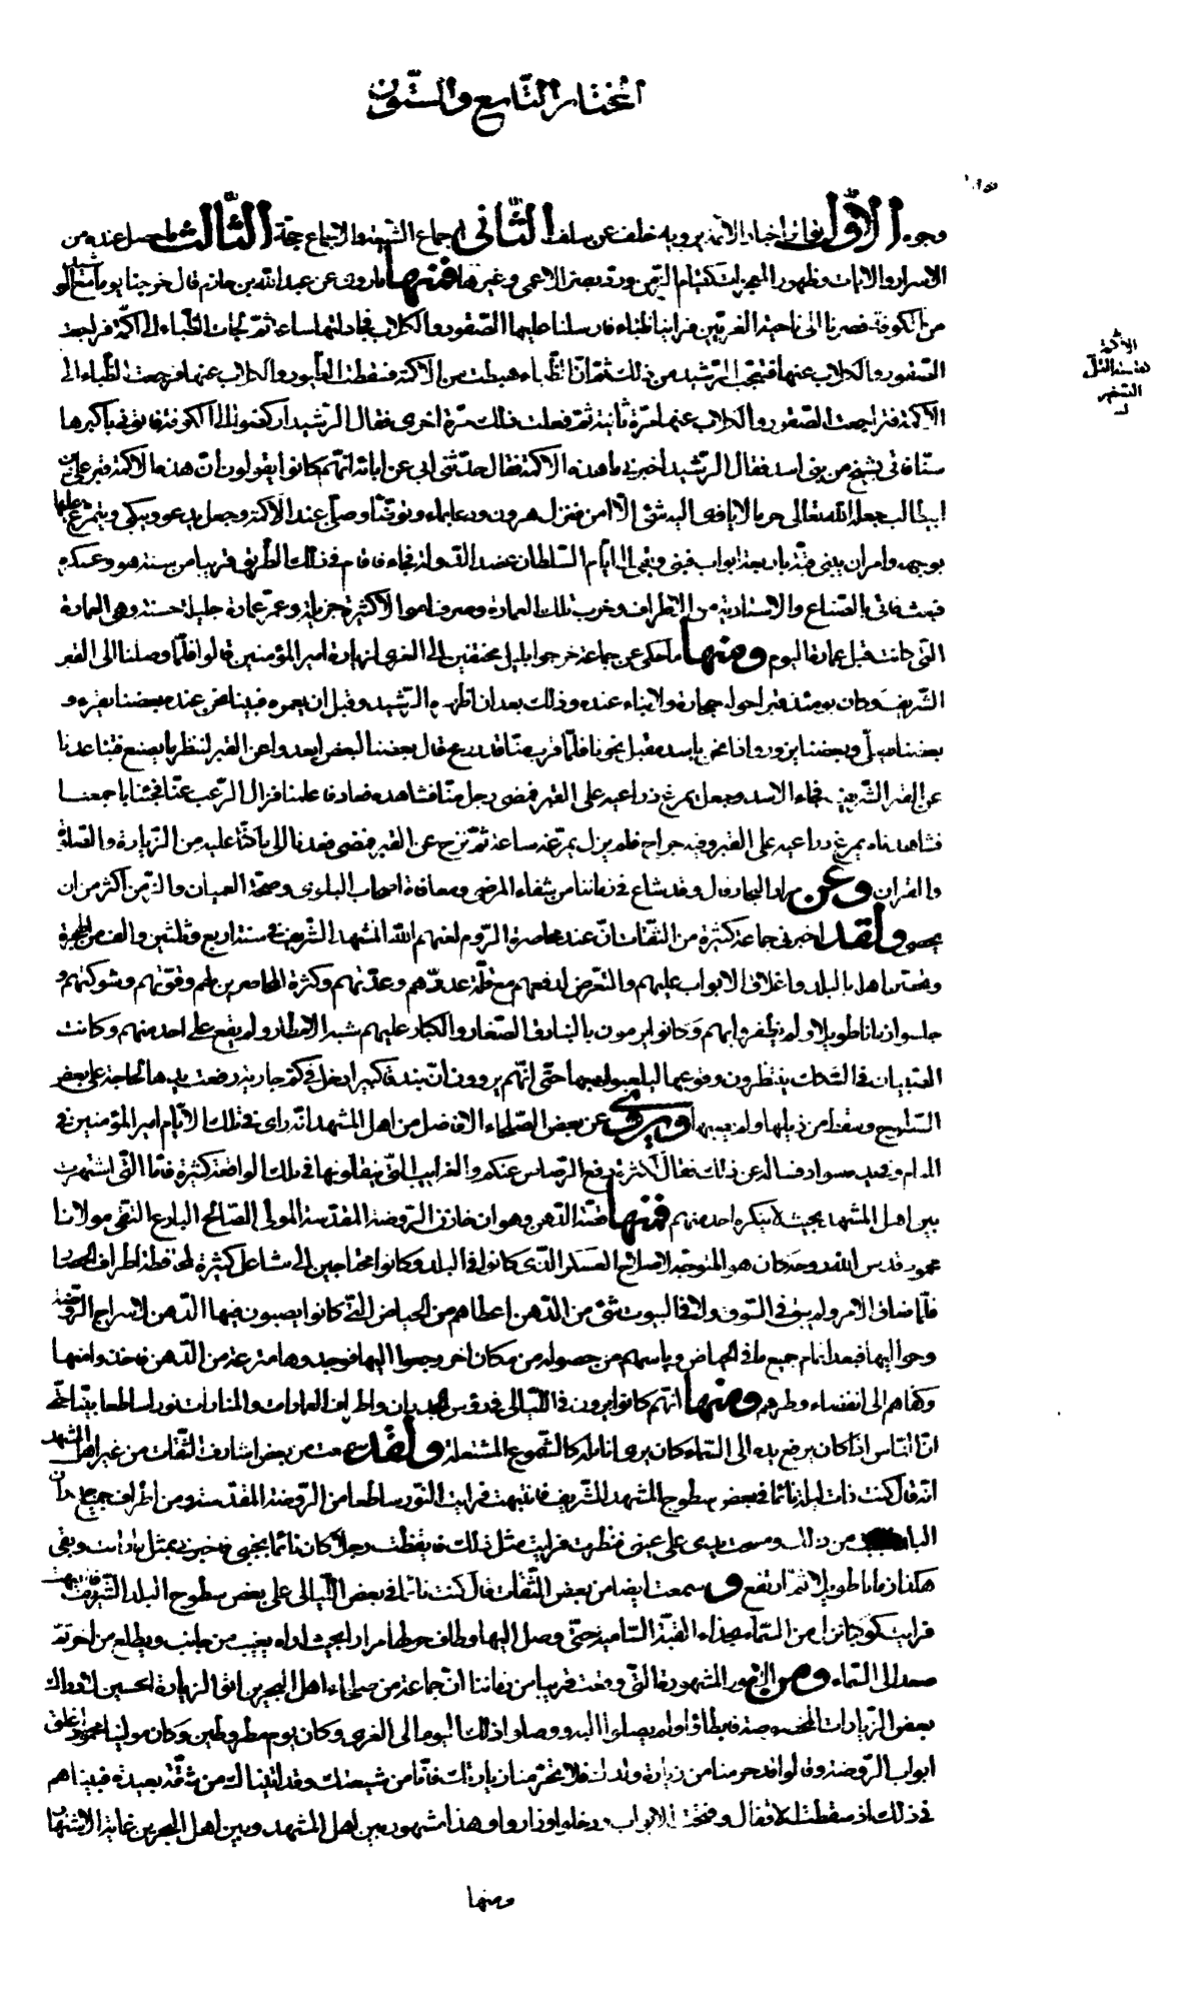 المختار التاسع والستون
وجوه الأول تواتر أخبار الأئمة يرويه خلف عن سلف الثاني إجماع الشيعة والإجماع حجة الثالث ما حصل عنده من
الاسرار والآيات وظهور المعجزات كقيام الزمن ورد بصر الاعمى وغيرها فمنها ما روى عن عبد الله بن حازم قال خرجنا يوما مع الرشيد
من الكوفة فصرنا الى ناحية الغريين فراينا ظباء فارسلنا عليها الصقور والكلاب فجاولتها ساعة ثم لجات الظباء الى اكمة فتراجعت
الصقور والكلاب عنها فتعجب الرشيد من ذلك ثم ان الظباء هبطت من الاكمة فسقطت الطيور والكلاب عنها فرجعت الظباء الى
الاكمة فتراجعت الصقور والكلاب عنها مرة ثانية ثم فعلت ذلك مرة اخرى فقال الرشيد اركضوا الى الكوفة فاتوني باكبرها
سنا فاتى بشيخ من بني اسد فقال الرشيد اخبرني ما هذه الاكمة فقال حدثني ابي عن ابائه انهم كانوا يقولون ان هذه الاكمة قبر على بن
ابيطالب جعله الله تعالى حرما لا ياوى اليه شئ الا امن فنزل هرون ودعا بماء وتوضا وصلى عند الاكمة وجعل يدعو ويبكي ويتمرغ عليها
بوجهه وامر ان يبنى قبة باربعة ابواب فبنى وبقى الى ايام السلطان عضد الدولة فجاء فاقام في ذلك الطريق قريبا من سنة هو وعسكره
فبعث فاتى بالصناع والاستادية من الاطراف وخرب تلك العمارة وصرف اموالا كثيرة جزيلة وعمر عمارة جليلة حسنة وهي العمارة
التي كانت قبل عمارة اليوم ومنها ما حكى عن جماعة خرجوا بليل مختفين الى الغرى لزيارة امير المؤمنين قالوا فلما وصلنا الى القبر
الشريف وكان يومئذ قبرا حوله حجارة ولا بناء عنده وذلك بعد ان اظهره الرشيد وقبل ان يعمره فبينا نحن عنده بعضنا يقرء و
بعضنا يصلى وبعضنا يزور واذا نحن باسد مقبل نحونا فلما قرب منا قدر رمح قال بعضنا لبعض ابعدوا عن القبر لننظر ما يصنع فتباعدنا
عن القبر الشريف فجاء الاسد وجعل يمرغ ذراعيه على القبر فمضى رجل منا فشاهده فعاد فاعلمنا فزال الرعب عنا فجئنا باجمعنا
فشاهدناه يمرغ ذراعيه على القبر وفيه جراح فلم يزل يمرغه ساعة ثم نزح عن القبر فمضى فعدنا الى ما كنا عليه من الزيارة والصلاة
والقران وعن البحار قال وقد شاع في زماننا من شفاء المرضى ومعافاة اصحاب البلوى وصحة العميان والزمن اكثر من ان
يحصى ولقد اخبرني جماعة كثيرة من الثقات ان عند محاصرة الروم لعنهم الله المشهد الشريف في سنة اربع وثلثين والف من الهجرة
وتحصن اهله بالبلد واغلاق الابواب عليهم والتعرض لدفعهم مع قلة عددهم وعدتهم وكثرة المحاصرين لهم وقوتهم وشوكتهم
جلسوا زمانا طويلا ولم يظفروا بهم وكانوا يرمون بالبنادق الصغار والكبار عليهم شبه الامطار ولم يقع على احد منهم وكانت
الصبيان في السكك ينتظرون وقوعها ليلعبوا بها حتى انهم يروون ان بندقا كبيرا دخل في كم جارية رفعت يدها لحاجة على بعض
السطوح وسقط من ذيلها ولم يصبها ويروى عن بعض الصلحاء الافاضل من اهل المشهد انه راى في تلك الايام امير المؤمنين في
المنام وفي يده سواد فساله عن ذلك فقال لكثرة دفع الرصاص عنكم والغرايب التي ينقلونها في تلك الواقعة كثيرة فاما التي اشتهرت
بين اهل المشهد بحيث لا ينكره احد منهم فمنها قصة الدهن وهو ان خازن الروضة المقدسة المولى الصالح البارع التقى مولانا
محمود قدس الله روحه كان هو المتوجه لاصلاح العسكر الذي كانوا في البلد وكانوا محتاجين الى مشاعل كثيرة لمحافظة اطراف الحصار
فلما ضاق الامر ولم يبق في السوق ولا في البيوت شئ من الدهن اعطاهم من الحياض التي كانوا يصبون فيها الدهن لاسراج الروضة
وحواليها فبعد اتمام جميع ما في الحياض وياسهم من حصوله من مكان اخر رجعوا اليها فوجدوها مترعة من الدهن فاخذوا منها
وكفاهم الى انقضاء وطرهم ومنها انهم كانوا يرون في الليالي في رؤس الجدران واطراف العمارات والمنارات نورا ساطعا بينا حتى
ان الناس اذا كان يرفع يده الى السماء كان يرى انامله كالشموع المشتعلة ولقد سمعت من بعض اشارف الثقات من غير اهل المشهد
انه قال كنت ذات ليلة نائما في بعض سطوح المشهد الشريف فانتبهت فرايت النور ساطعا من الروضة المقدسة ومن اطراف جميع جدران
البلد من ذلك ومسحت يدى على عينى فنظرت فرايت مثل ذلك فايقظت رجلا كان نائما بجنبى فاخبرني بمثل ما رايت وبقى
هكذا زمانا طويلا ثم ارتفع وسمعت ايضا من بعض الثقات قال كنت نائما في بعض الليالي على بعض سطوح البلد الشريف فانتبهت
فرايت كوكبا نزل من السماء بحذاء القبة السامية حتى وصل اليها وطاف حولها مرارا بحيث اراه يغيب من جانب ويطلع من اخر ثم
صعد الى السماء ومن الامور المشهورة التي وقعت قريبا من زماننا ان جماعة من صلحاء اهل البحرين اتوا لزيارة الحسين لادراك
بعض الزيارات المخصوصة فابطاؤا ولم يصلوا اليه ووصلوا ذلك اليوم الى الغرى وكان يوم مطر وطين وكان مولينا محمود اغلق
ابواب الروضة وقالوا قد حرمنا من زيارة ولدك فلا تحرمنا زيارتك فانا من شيعتك وقد اتيناك من شقة بعيدة فبيناهم
في ذلك اذ سقطت الاقفال وفتحت الابواب ودخلوا وزاروا وهذا مشهور بين اهل المشهد وبين اهل البحرين غاية الاشتهار
ومنها
الاكمة
التل